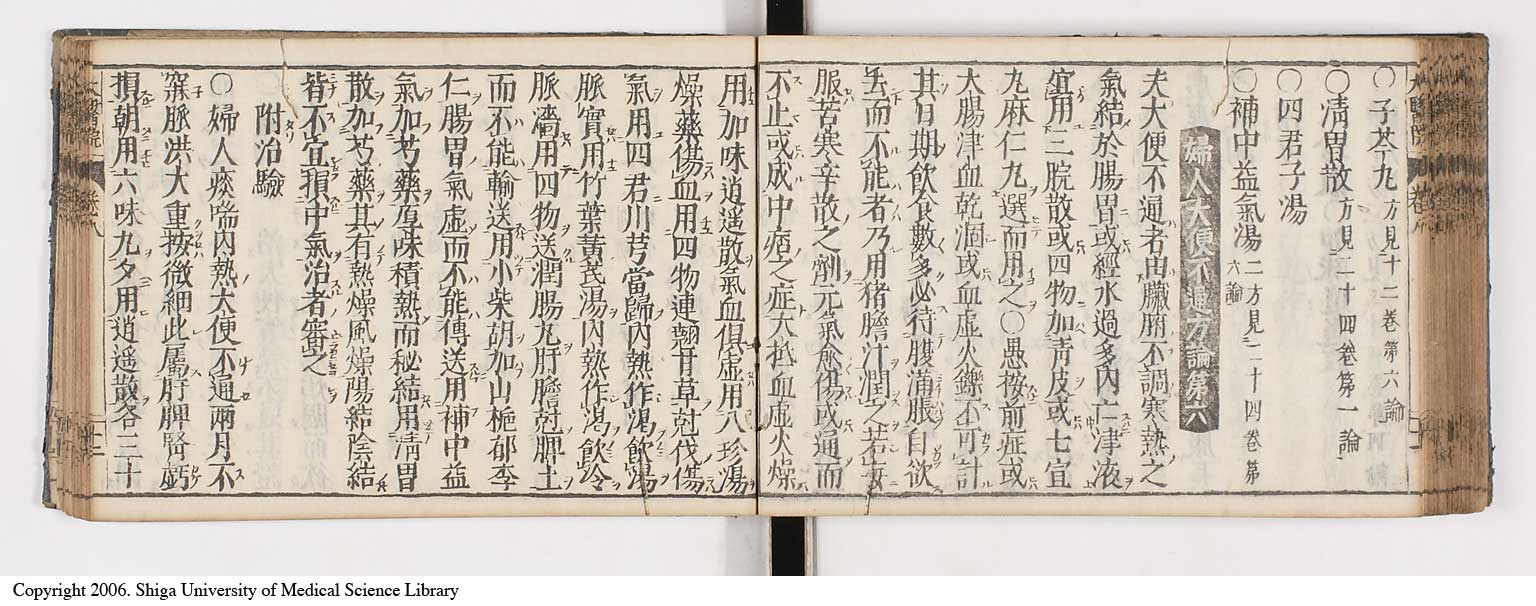 ○子芩丸方見十二卷第六論
○淸胃散方見二十四卷第一論
○四君子湯
○補中益氣湯二方見二十四卷第六論
婦人大便不通方論第六
夫大便不通者由臟腑不調寒熱之
氣結於腸胃或經水過多內亡津液
宜用三脘散或四物加靑皮或七宣
丸麻仁丸選而用之○愚按前症或
大腸津血乾涸或血虛火鑠不可計
其日期飮食數多必待腹滿脹自欲
去而不能者乃用猪膽汁潤之若妄
服苦寒辛散之劑元氣愈傷或通而
不止或成中痞之症大抵血虛火燥
用加味逍遥散氣血俱虛用八珍湯
燥藥傷血用四物連翹甘草尅伐傷
氣用四君川芎當歸內熱作渴飮湯
脈實用竹葉黃芪湯內熱作渴飮冷
脈濇用四物送潤腸丸肝膽尅脾土
而不能輸送用小柴胡加山梔郁李
仁腸胃氣虛而不能傳送用補中益
氣加芍藥厚味積熱而秘結用淸胃
散加芍藥其有熱燥風燥陽結陰結
皆不宜損中氣治者審之
附治驗
○婦人痰喘內熱大便不通兩月不
寐脈洪大重按微細此屬肝脾腎虧
損朝用六味丸夕用逍遥散各三十